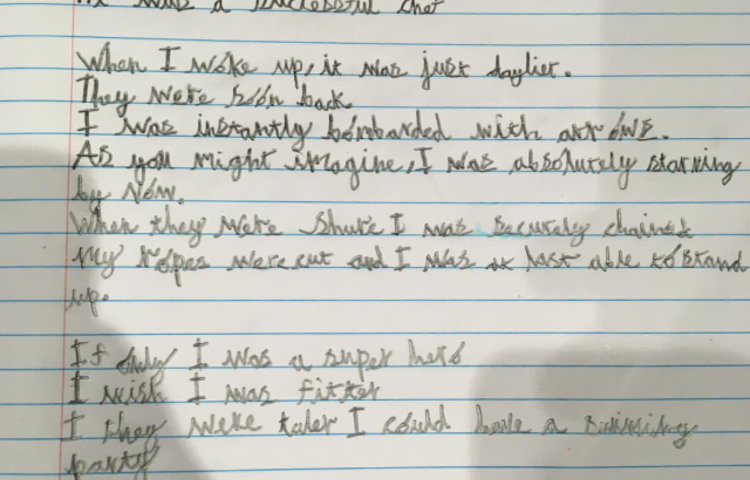 was a successful chef
When I woke up, it was just daylier.
They were soon back.
I was instantly bombarded with arrows.
As you might imagine, I was absolutely starving
by now.
When they were shure I was securely chained
my ropes were cut and I was at last able to stand
up.
If only I was a super hero
I wish I was fitter
I they were taler I could have a swiming
party